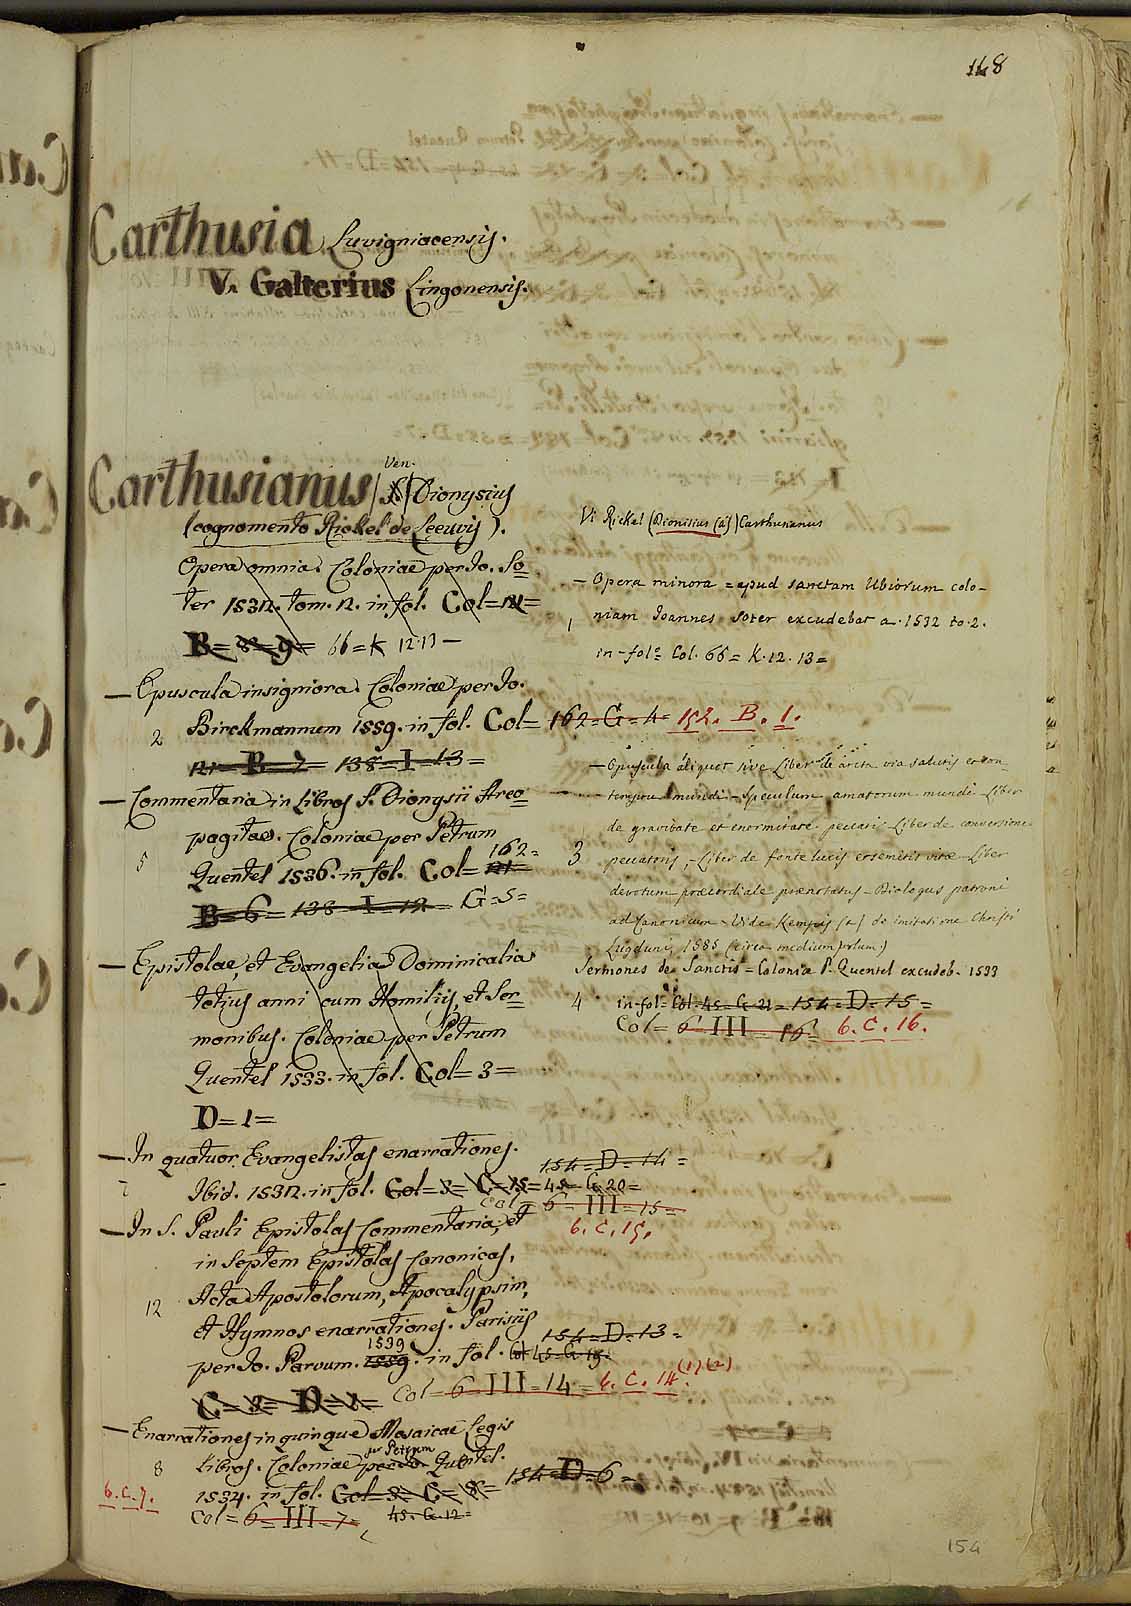 148
Carthusia Luvigniacensis.
V. Galterius Lingonensis.
Ven.
Carthusianus (S.) Dionysius
(cognomento Rickel de Leeuvis).
Opera omnia. Coloniae per Io. So=
ter 1532. tom. 2. in fol. Col=21=
B= 8= 9= 66=K 12.13—
— Opuscula insigniora. Coloniae per Io.
2 Birckmannum 1559. in fol. Col= 162=G=4= 152. B. 1.
121=B=7= 138=I=13=
— Commentaria in Libros S. Dionysii Areo=
pagitae. Coloniae per Petrum
5 Quentel 1536. in fol. Col= 121= 162=
B=6= 138=I=12= G=5=
— Epistolae, et Evangelia Dominicalia
totius anni cum Homiliis, et Ser=
monibus. Coloniae per Petrum
Quentel 1533. in fol. Col=3=
D=1=
— In quatuor Evangelistas enarrationes.
7 Ibid. 1532. in fol. Col=3= C=15= 45=G 20=
154=D=14=
Col= 6=III=15=
6. C. 15.
— In S. Pauli Epistolas Commentaria, et
in septem Epistolas Canonicas,
12 Acta Apostolorum, Apocalypsim,
et Hymnos enarrationes. Parisiis
1539
per Io. Parvum. 1559. in fol. Col 45=G=19=
154=D=13=
Col= 6=III=14= 6. C. 14. (1)(2)
— Enarrationes in quinque Mosaicae Legis
per Petrum
8 Libros. Coloniae Quentel.
1534. in fol. Col=3= C=18= 154=D=6=
6. C. 7.
Col= 6=III=7= 45=G=12=
V. Rickel (Dionisius (á) Carthusianus
— Opera minora = apud sanctam Ubiorum colo-
1 niam Ioannes Soter excudebat a. 1532 to. 2.
in-folº Col. 66= K. 12. 13=
— Opuscula aliquot sive Liber de arcta via salutis et con-
temptu mundi - Speculum amatorum mundi - Liber
de gravitate et enormitate peccati - Liber de conversione
3 peccatoris, - Liber de fonte lucis et semitis vitae - Liber
devotum praecordiale praenotatus - Dialogus patroni
ad Canonicum - Vide Kempis (a) de imitatione Christi
Lugduni 1585 (circa medium volum:)
Sermones de Sanctis = Colonia P. Quentel excudeb. 1533
4 in-fol= Col=45=G 21= 154=D=15=
Col= 6=III=16= 6. C. 16.
154